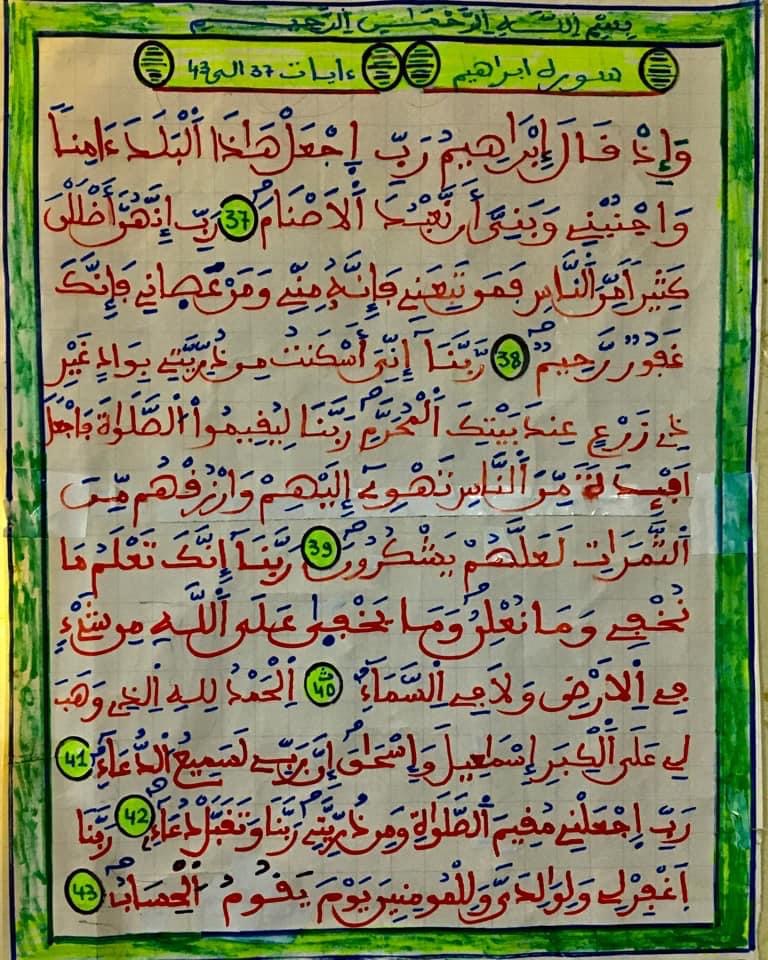 بِسْمِ اللَّهِ الرَّحْمَٰنِ الرَّحِيمِ
سورة ابراهيم ءايات 37 الى 43
وَإِذْ قَالَ إِبْرَاهِيمُ رَبِّ اِجْعَلْ هَاذَا اَلْبَلَدَ ءَامِناً
وَاجْنُبْنِے وَبَنِيَّ أَن نَّعْبُدَ اَلَاصْنَامَ 37 رَبِّ إِنَّهُنَّ أَضْلَلْنَ
كَثِيراً مِّنَ اَلنَّاسِ فَمَن تَبِعَنِے فَإِنَّهُۥ مِنِّے وَمَنْ عَصَانِے فَإِنَّكَ
غَفُورٌ رَّحِيمٌ 38 رَّبَّنَا إِنِّيَ أَسْكَنتُ مِن ذُرِّيَّتِے بِوَادٍ غَيْرِ
ذِے زَرْعٍ عِندَ بَيْتِكَ اَلْمُحَرَّمِ رَبَّنَا لِيُقِيمُواْ اَلصَّلَوٰةَ فَاجْعَلَ
اَفْـِٕدَةً مِّنَ اَلنَّاسِ تَهْوِےٓ إِلَيْهِمْ وَارْزُقْهُم مِّنَ
اَلثَّمَرَاتِ لَعَلَّهُمْ يَشْكُرُونَ 39 رَبَّنَا إِنَّكَ تَعْلَمُ مَا
نُخْفِے وَمَا نُعْلِنُ وَمَا يَخْفَىٰ عَلَى اَللَّهِ مِن شَےْءٍ
فِے اِلَارْضِ وَلَا فِے اِلسَّمَآءِ 40 اِلْحَمْدُ لِلهِ اِلذِے وَهَبَ
لِے عَلَى اَلْكِبَرِ إِسْمَاعِيلَ وَإِسْحَاقَ إِنَّ رَبِّے لَسَمِيعُ اُلدُّعَآءِ 41
رَبِّ اِجْعَلْنِے مُقِيمَ اَلصَّلَوٰةِ وَمِن ذُرِّيَّتِے رَبَّنَا وَتَقَبَّلْ دُعَآءِ 42 رَبَّنَا
اَغْفِرْ لِے وَلِوَالِدَيَّ وَلِلْمُومِنِينَ يَوْمَ يَقُومُ اُلْحِسَابُ 43